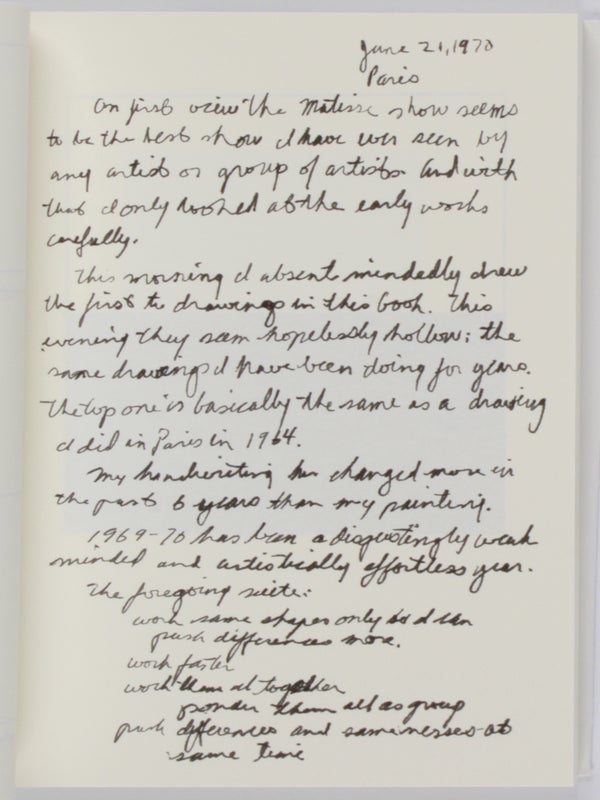 June 21, 1970
Paris
On first view the Matisse show seems
to be the best show I have ever seen by
any artist or group of artists. And with
that I only looked at the early works
carefully.
This morning I absent mindedly drew
the first two drawings in this book. This
evening they seem hopelessly hollow; the
same drawings I have been doing for years.
The top one is basically the same as a drawing
I did in Paris in 1964.
My handwriting has changed more in
the past 6 years than my painting.
1969-70 has been a disgustingly weak
minded and artistically effortless year.
The foregoing suite:
work same shapes only so I can
push differences more.
work faster
work them all together
ponder them all as group
push differences and samenesses at
same time